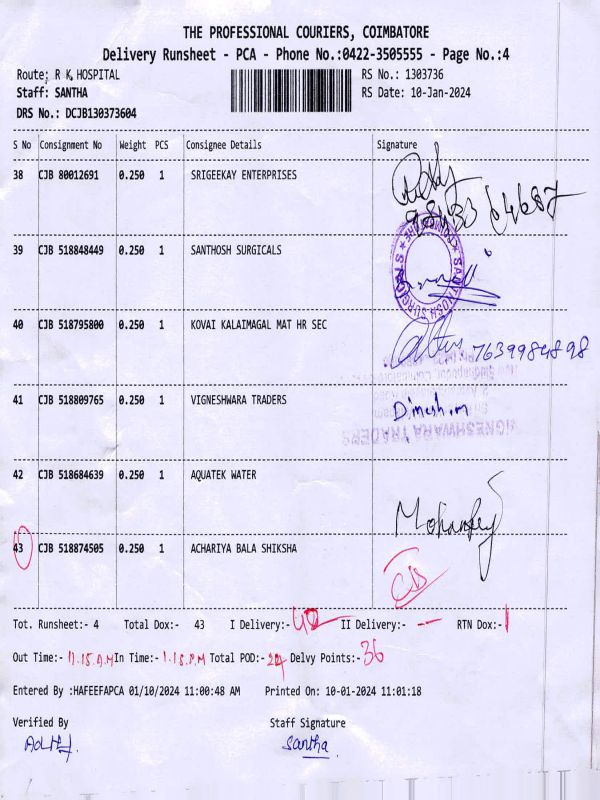 THE PROFESSIONAL COURIERS, COIMBATORE
Delivery Runsheet - PCA - Phone No.:0422-3505555 - Page No.:4
Route; R K HOSPITAL RS No.: 1303736
Staff: SANTHA RS Date: 10-Jan-2024
DRS No.: DCJB130373604
S No Consignment No Weight PCS Consignee Details Signature
38 CJB 80012691 0.250 1 SRIGEEKAY ENTERPRISES
39 CJB 518848449 0.250 1 SANTHOSH SURGICALS
40 CJB 518795800 0.250 1 KOVAI KALAIMAGAL MAT HR SEC
7639984898
41 CJB 518809765 0.250 1 VIGNESHWARA TRADERS Dinesh.m
VIGNESHWARA TRADERS
42 CJB 518684639 0.250 1 AQUATEK WATER
43 CJB 518874505 0.250 1 ACHARIYA BALA SHIKSHA
Tot. Runsheet:- 4 Total Dox:- 43 I Delivery:- 42 II Delivery:- - RTN Dox:- 1
Out Time:- 11.15.A.M In Time:- 1.15.P.M Total POD:- Delvy Points:- 36
Entered By :HAFEEFAPCA 01/10/2024 11:00:48 AM Printed On: 10-01-2024 11:01:18
Verified By Staff Signature
Santha